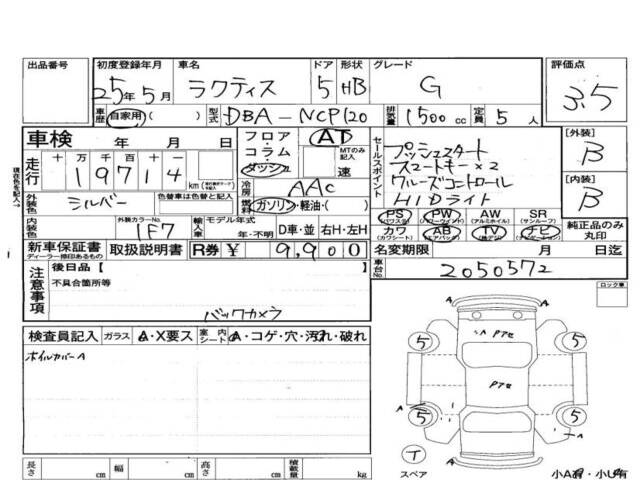 出品番号 初度登録年月 車名 ドア 形状 グレード 評価点
25年5月 ラクティス 5 HB G 3.5
車歴 自家用( ) 型式 DBA-NCP120 排気量 1500cc 定員 5人
車検 年 月 日
フロア・コラム・ダッシュ AT MTのみ記入 速
走行 十 万 千 百 十 一
19714 km
冷房 AAC
外装色 シルバー 色替車は色替と記入
燃料 ガソリン・軽油・( )
内装色 外装カラーNo. 1F7 輸入車 モデル年式 年・不明 D車・並 右H・左H
新車保証書 ディーラー捺印あるもの 取扱説明書 R券 ¥ 9,900
セールスポイント
プッシュスタート
スマートキー×2
クルーズコントロール
HIDライト
[外装] B
[内装] B
PS (パワステ) PW (パワーウインド) AW (アルミホイル) SR (サンルーフ)
カワ (カワシート) AB (エアバック) TV (地デジ) ナビ (ナビゲーション) 純正品のみ丸印
名変期限 月 日迄
車台No. 2050572
注意事項 後日品[ ]
不具合箇所等
バックカメラ
ロック車
検査員記入 ガラス A・X要ス 室内シート A・コゲ・穴・汚れ・破れ
ホイルカバーA
A A
5 5
A Pアセ
Pアセ
A A
5 5
T
スペア
A A
長さ cm 幅 cm 高さ cm 積載量 kg
小A有・小U有
現在色を記入→